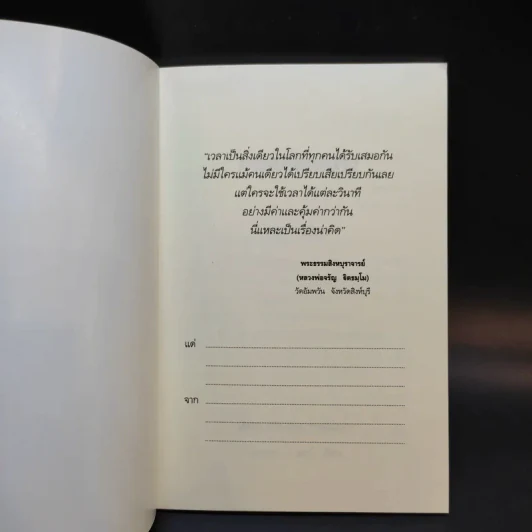 "เวลาเป็นสิ่งเดียวในโลกที่ทุกคนได้รับเสมอกัน
ไม่มีใครแม้คนเดียวได้เปรียบเสียเปรียบกันเลย
แต่ใครจะใช้เวลาได้แต่ละวินาที
อย่างมีค่าและคุ้มค่ากว่ากัน
นี่แหละเป็นเรื่องน่าคิด"
พระธรรมสิงหบุราจารย์
(หลวงพ่อจรัญ ฐิตธมฺโม)
วัดอัมพวัน จังหวัดสิงห์บุรี
แด่
จาก